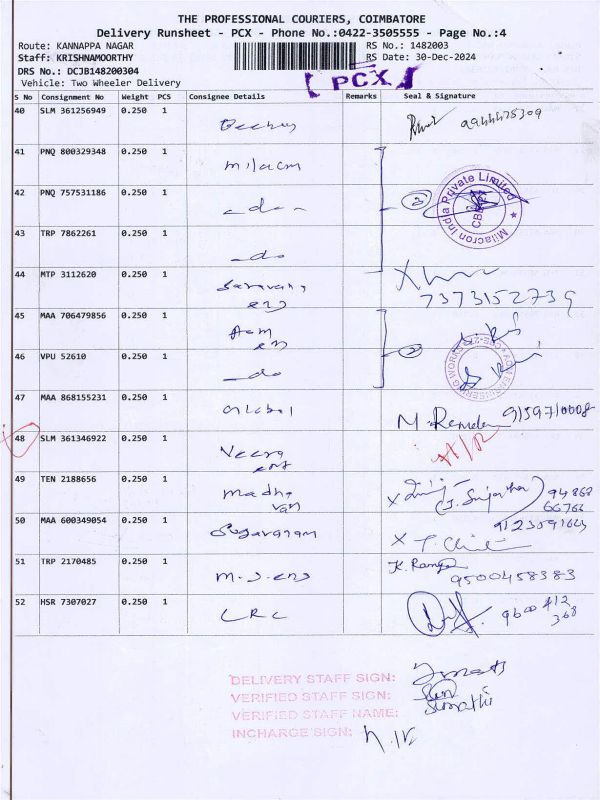 THE PROFESSIONAL COURIERS, COIMBATORE
Delivery Runsheet - PCX - Phone No.:0422-3505555 - Page No.:4
Route: KANNAPPA NAGAR RS No.: 1482003
Staff: KRISHNAMOORTHY RS Date: 30-Dec-2024
DRS No.: DCJB148200304
Vehicle: Two Wheeler Delivery
PCX
S No Consignment No Weight PCS Consignee Details Remarks Seal & Signature
40 SLM 361256949 0.250 1
41 PNQ 800329348 0.250 1 milacm
42 PNQ 757531186 0.250 1 - do -
Milacron India Private Limited
43 TRP 7862261 0.250 1 - do
44 MTP 3112620 0.250 1 Saravana
eng
7373152739
45 MAA 706479856 0.250 1
46 VPU 52610 0.250 1 - do
47 MAA 868155231 0.250 1 Global
48 SLM 361346922 0.250 1 Veera
eng
49 TEN 2188656 0.250 1 madha
van
50 MAA 600349054 0.250 1
51 TRP 2170485 0.250 1 m.s.eng
9500458383
52 HSR 7307027 0.250 1 LRC
9600412
368
DELIVERY STAFF SIGN:
VERIFIED STAFF SIGN:
VERIFIED STAFF NAME: Sumathi
INCHARGE SIGN: